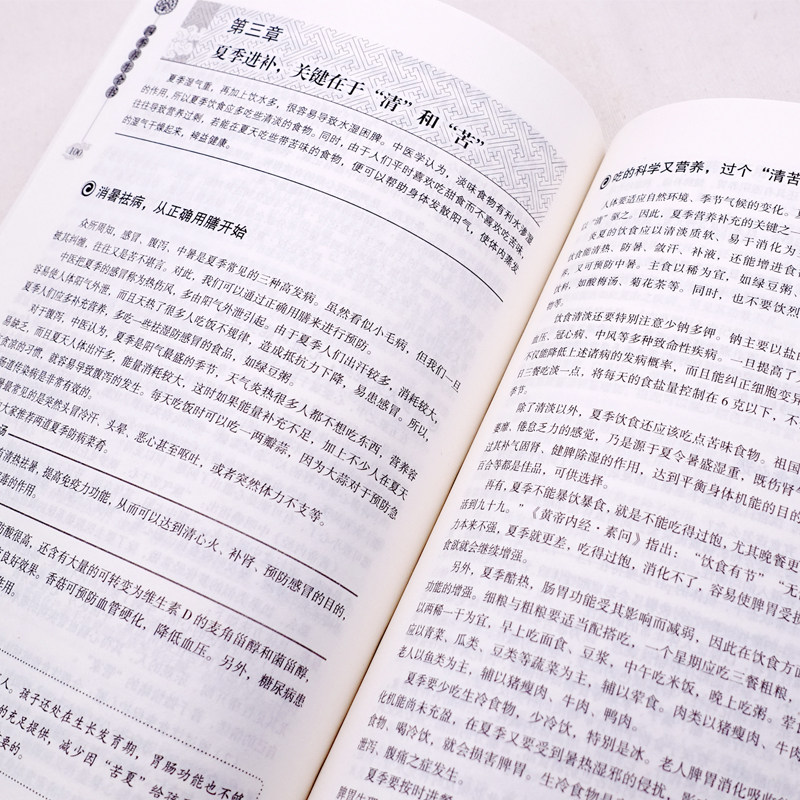 四季养生全书
100
第三章
夏季进补，关键在于“清”和“苦”
夏季湿气重，再加上饮水多，很容易导致水湿困脾。中医学认为，淡味食物有利水渗湿
的作用，所以夏季饮食应多吃些清淡的食物。同时，由于人们平时喜欢吃甜食而不喜欢吃苦味，
往往导致营养过剩，若能在夏天吃些带苦味的食物，便可以帮助身体发散阳气，使体内蒸发
的湿气干燥起来，裨益健康。
消暑祛病，从正确用膳开始
众所周知，感冒，腹泻，中暑是夏季常见的三种高发病。虽然看似小毛病，但我们一旦
被其纠缠，往往又是苦不堪言。对此，我们可以通过正确用膳来进行预防。
中医把夏季的感冒称为热伤风，多由阳气外泄引起。由于夏季人们出汗较多，消耗较大，
容易使人体阳气外泄，而且天热了很多人吃饭不规律，造成抵抗力下降，易患感冒。所以，
夏季人们应多补充营养，多吃一些祛湿防感冒的食品，如绿豆粥。
对于腹泻，中医认为，夏季是阳气最盛的季节，天气炎热很多人都不想吃东西，营养容
易缺乏，而且夏天人体出汗多，能量消耗较大，这时如果能量补充不足，加上不少人在夏天
食凉的习惯，就容易导致腹泻的发生。每天吃饭时可以吃一两瓣蒜，因为大蒜对于预防急
肠道传染病是非常有效的。
暑最常见的是突然头冒冷汗、头晕，恶心甚至呕吐，或者突然体力不支等。
大家推荐两道夏季防病菜肴。
汤
有清热祛暑，提高免疫力功能，从而可以达到清心火、补肾、预防感冒的目的，
毒的作用。
肪酸很高，还含有大量的可转变为维生素 D 的麦角甾醇和菌甾醇，
良好效果。香菇可预防血管硬化，降低血压。另外，糖尿病患
作用。
人。孩子还处在生长发育期，胃肠功能也不够
的充足提供，减少因“苦夏”给孩
要的。
吃的科学又营养，过个“清苦
人体要适应自然环境、季节气候的变化。
以“清”驱之。因此，夏季营养补充的关键之一
炎夏的饮食应以清淡质软、易于消化为
饮食能清热、防暑、敛汗、补液，还能增进食
又可预防中暑。主食以稀为宜，如绿豆粥、
饮料，如酸梅汤、菊花茶等。同时，也不要饮烈
管等。
饮食清淡还要特别注意少钠多钾。钠主要以盐
血压、冠心病、中风等多种致命性疾病。一旦提高了
不仅能降低上述诸病的发病概率，而且能纠正细胞变异
日三餐吃淡一点，将每天的食盐量控制在 6 克以下，不
季节。
除了清淡以外，夏季饮食还应该吃点苦味食物。祖国
萎缩、倦怠乏力的感觉，乃是源于夏令暑盛湿重，既伤肾气
过其补气固肾、健脾除湿的作用，达到平衡身体机能的目的
百合等都是佳品，可供选择。
再有，夏季不能暴饮暴食，就是不能吃得过饱，尤其晚餐更
活到九十九。”《黄帝内经·素问》指出：“饮食有节”“无
力本来不强，夏季就更差，吃得过饱，消化不了，容易使脾胃受损
食欲就会继续增强。
另外，夏季酷热，肠胃功能受其影响而减弱，因此在饮食方面
功能的增强。细粮与粗粮要适当配搭吃，一个星期应吃三餐粗粮，
以两稀一干为宜，早上吃面食、豆浆，中午吃米饭，晚上吃粥。荤
应以青菜、瓜类、豆类等蔬菜为主，辅以荤食。肉类以猪瘦肉、牛
老人以鱼类为主，辅以猪瘦肉、牛肉、鸭肉。
夏季要少吃生冷食物，少冷饮，特别是冰。老人脾胃消化吸收
化机能尚未充盈，在夏季又要受到暑热湿邪的侵扰，影
食物、喝冷饮，就会损害脾胃。生冷食物是
泄泻、腹痛之症发生。
夏季要按时进餐